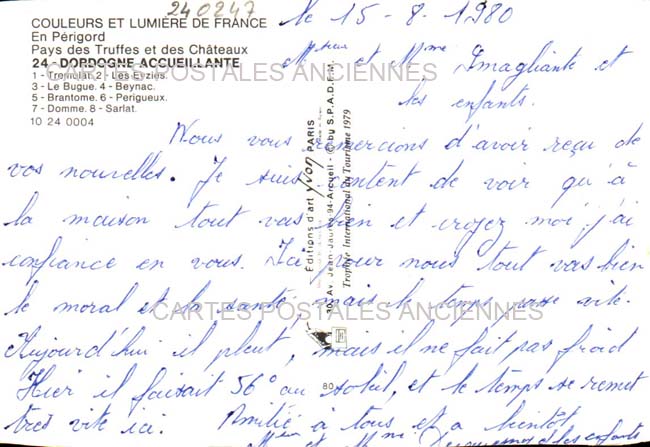 240247
COULEURS ET LUMIÈRE DE FRANCE
En Périgord
Pays des Truffes et des Châteaux
24 - DORDOGNE ACCUEILLANTE
1 - Tremolat. 2 - Les Eyzies.
3 - Le Bugue. 4 - Beynac.
5 - Brantome. 6 - Perigueux.
7 - Domme. 8 - Sarlat.
10 24 0004
le 15-8-1980
CARTES POSTALES ANCIENNES
et Mme Imagliante et
les enfants.
Nous vous remercions d'avoir reçu de
vos nouvelles. Je suis content de voir qu'à
la maison tout vas bien et croyez moi j'ai
confiance en vous. Ici pour nous tout vas bien
le moral et la santé, mais le temps passe vite.
CARTES POSTALES ANCIENNES
Aujourd'hui il pleut, mais il ne fait pas froid
Hier il faisait 56° au soleil, et le temps se remet
tres vite ici. Amitié à tous et a bientôt
et Mme et les enfants
Editions d'art yvon PARIS
30, Av. Jean-Jaurès 94-Arcueil - © by S.P.A.D.E.M.
Trophée International du Tourisme 1979
80